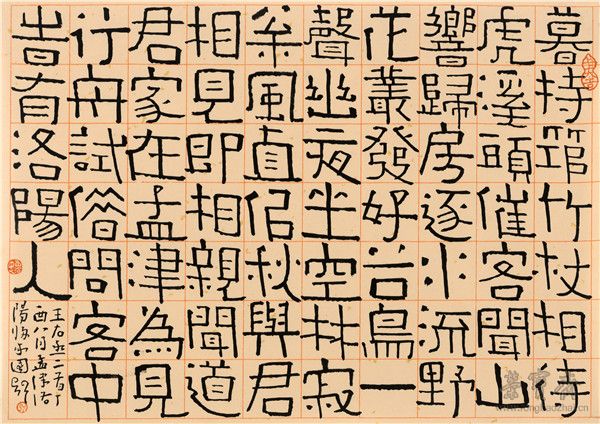 暮持筇竹杖相待
虎溪頭催客聞山
響歸房逐水流野
花叢發好谷鳥一
聲幽夜坐空林寂
枀風直佀秋與君
相見即相親聞道
君家在孟津為見
行舟試借問客中
旹有洛陽人
王右丞二首丁
酉八月孟津
陽